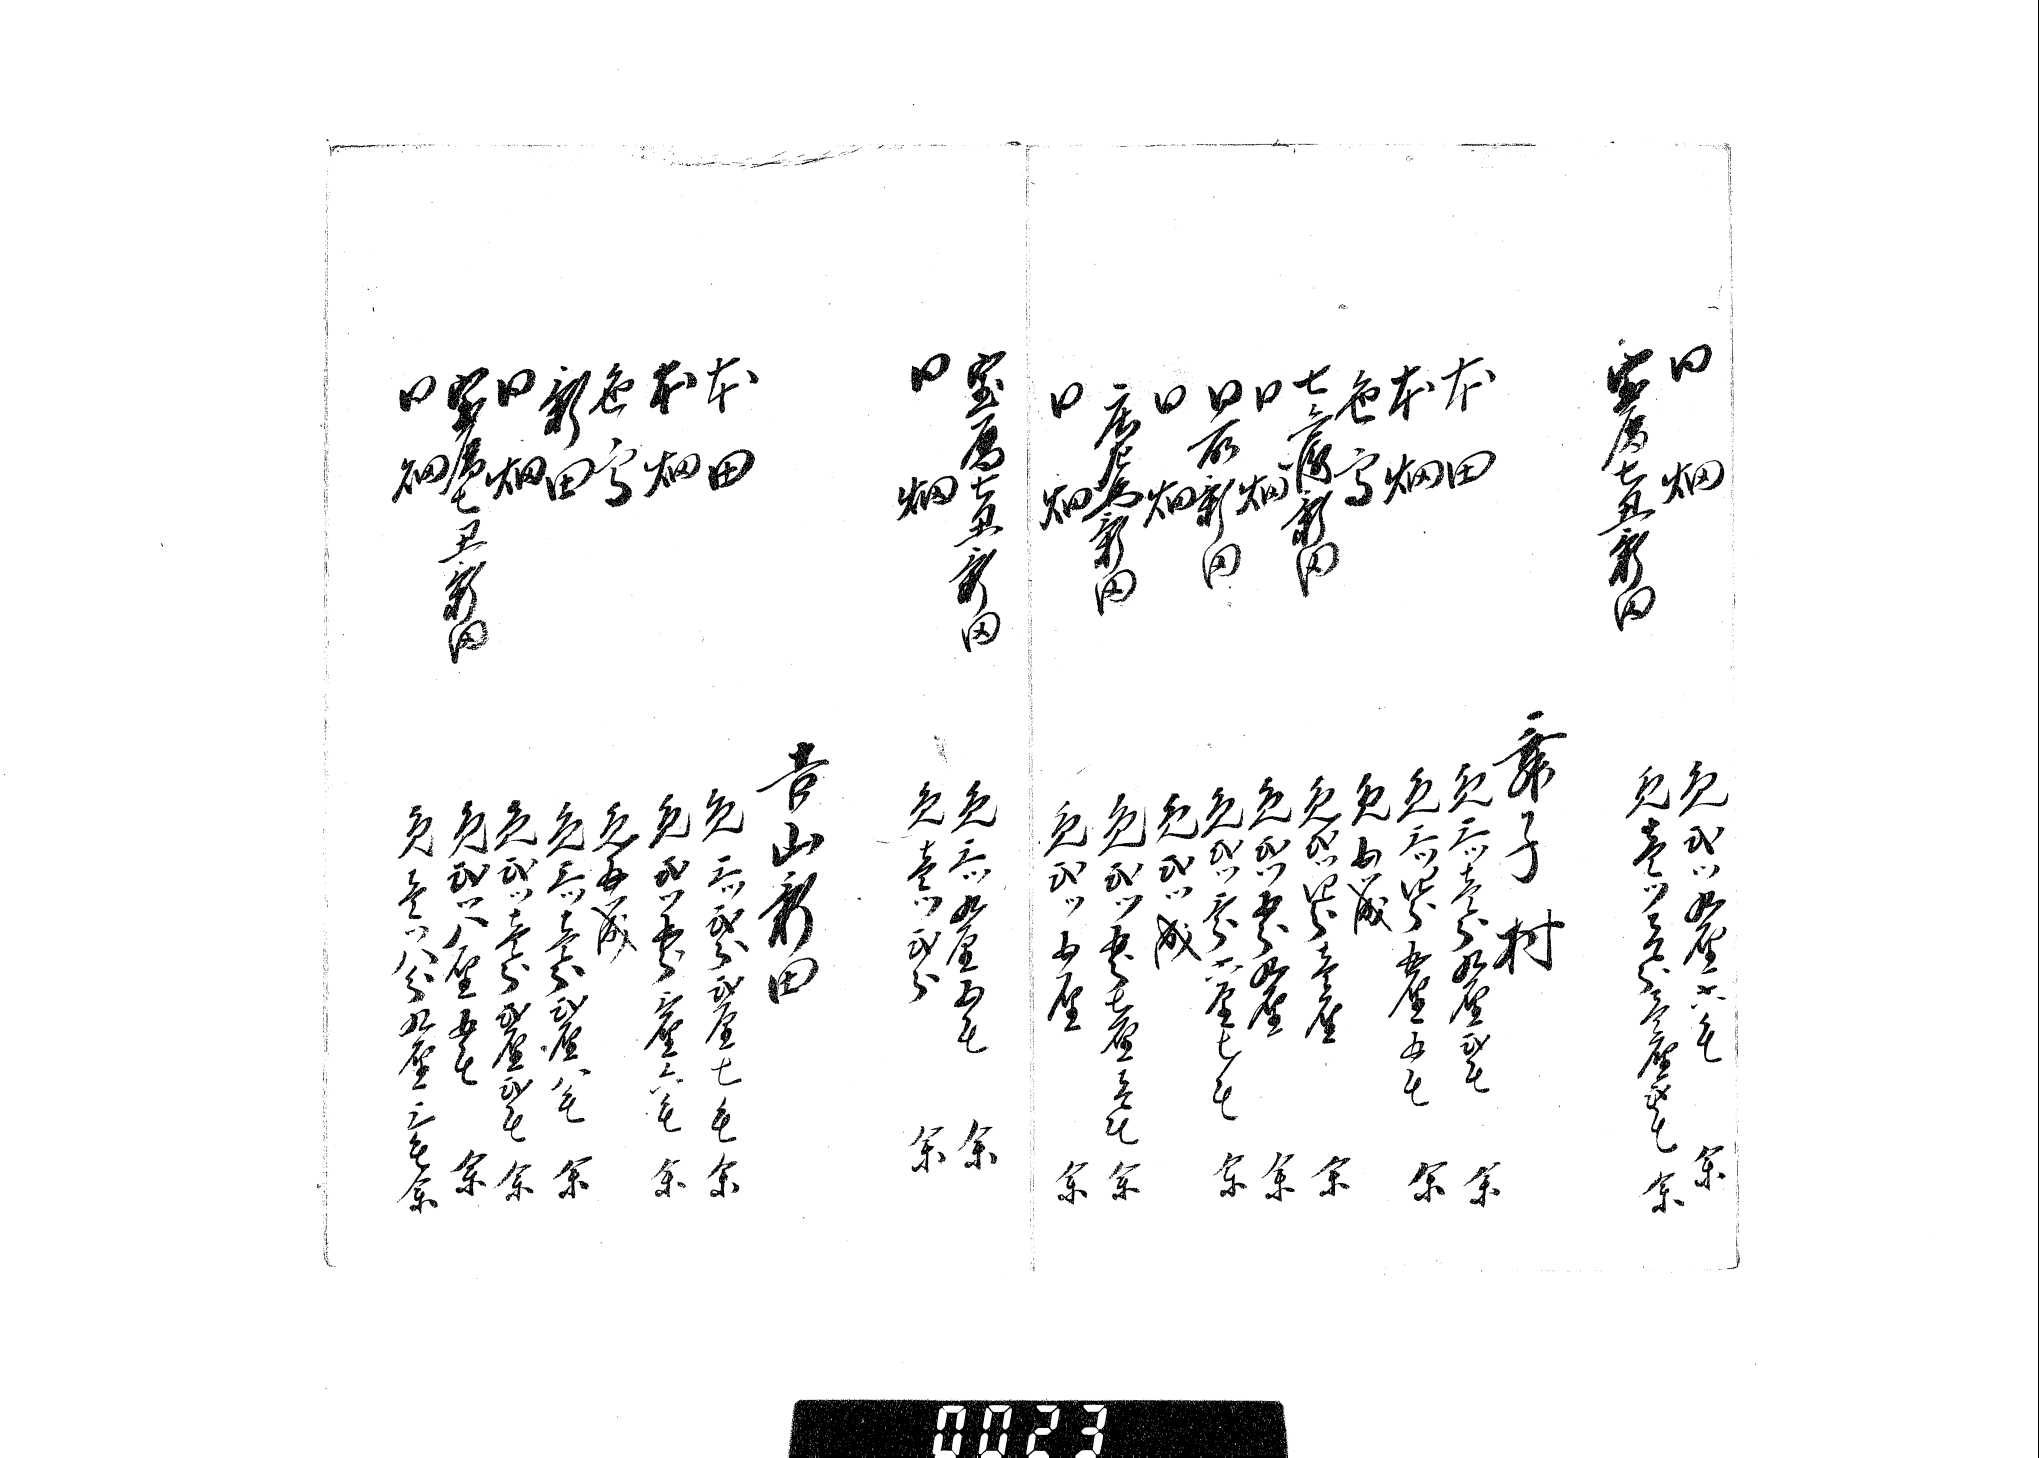 同　畑　免弐ツ九厘六毛　余
宝暦七丑新田　免壱ツ壱分壱厘弐毛　余
舞子村
本田　免三ツ壱分九厘弐毛　余
本畑　免三ツ四分五厘五毛　余
色高　免五ツ成
七ツ高新田　免弐ツ四分壱厘　余
同　畑　免弐ツ五分九厘　余
同所新田　免弐ツ三分六厘七毛　余
同　畑　免弐ツ成
辰巳高新田　免弐ツ五分七厘壱毛　余
同　畑　免弐ツ五厘　余
宝暦七丑新田　免三ツ九厘五毛　余
同　畑　免壱ツ弐分　余
吉山新田
本田　免三ツ弐分弐厘七毛　余
本畑　免弐ツ五分三厘六毛　余
色高　免五ツ成
新田　免三ツ壱分弐厘八毛　余
同　畑　免弐ツ壱分弐厘弐毛　余
宝暦七丑新田　免弐ツ八厘五毛　余
同　畑　免壱ツ八分九厘三毛余
0023